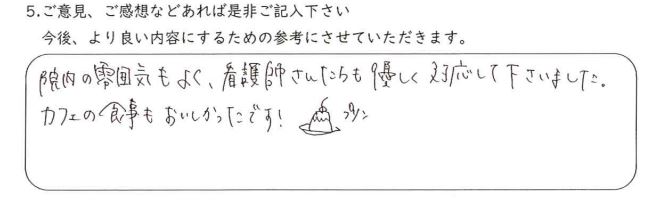 5.ご意見、ご感想などあれば是非ご記入下さい
今後、より良い内容にするための参考にさせていただきます。
院内の雰囲気もよく、看護師さんたちも優しく対応して下さいました。
カフェの食事もおいしかったです! プリン